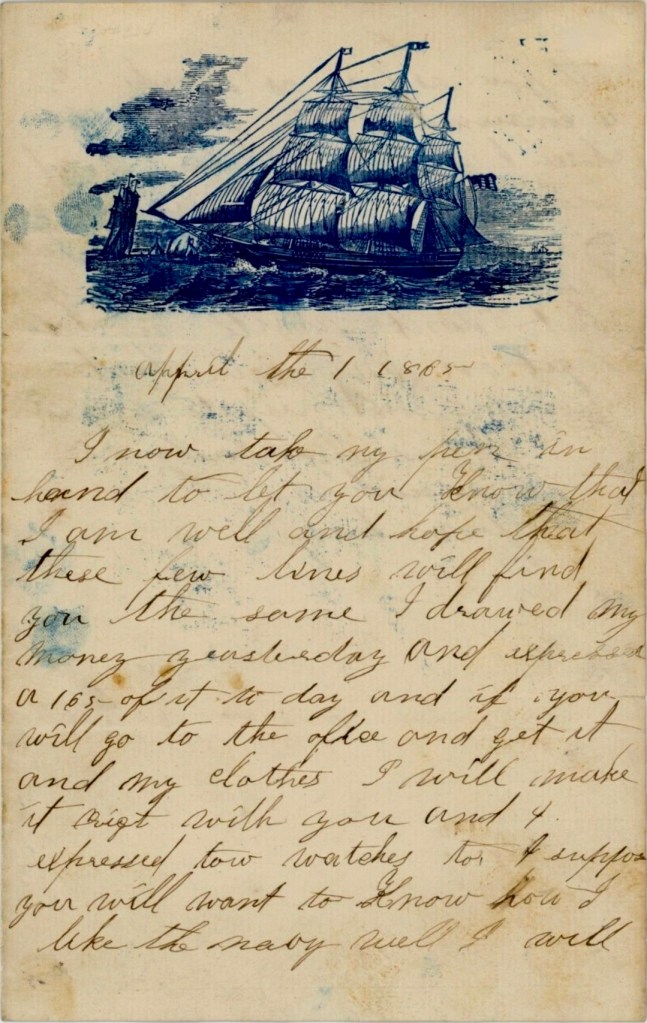 appriel the 1 1865
I now take my pen in
hand to let you Know that
I am well and hope that
these few lines will find
you the same I drawed my
money yeasterday and expressed
a 165 of it to day and if you
will go to the ofice and get it
and my clothes I will make
it rigt with you and I
expressed tow watches to I suppose
you will want to Know how I
like the navy well I will